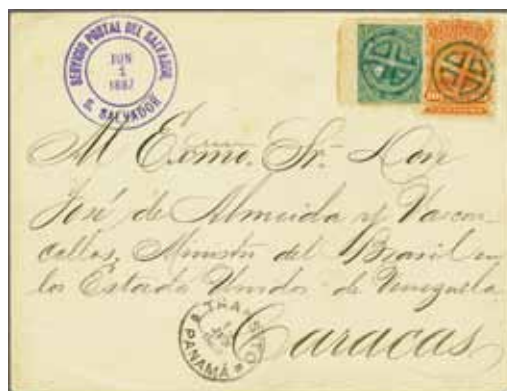 SERVICIO POSTAL DEL SALVADOR
JUN
1
1887
S. SALVADOR
10
Al Exmo. Sr. Don
José de Almeida y Vascon-
cellos, Ministro del Brasil en
los Estados Unidos de Venezuela
Caracas
TRANSITO
PANAMÁ